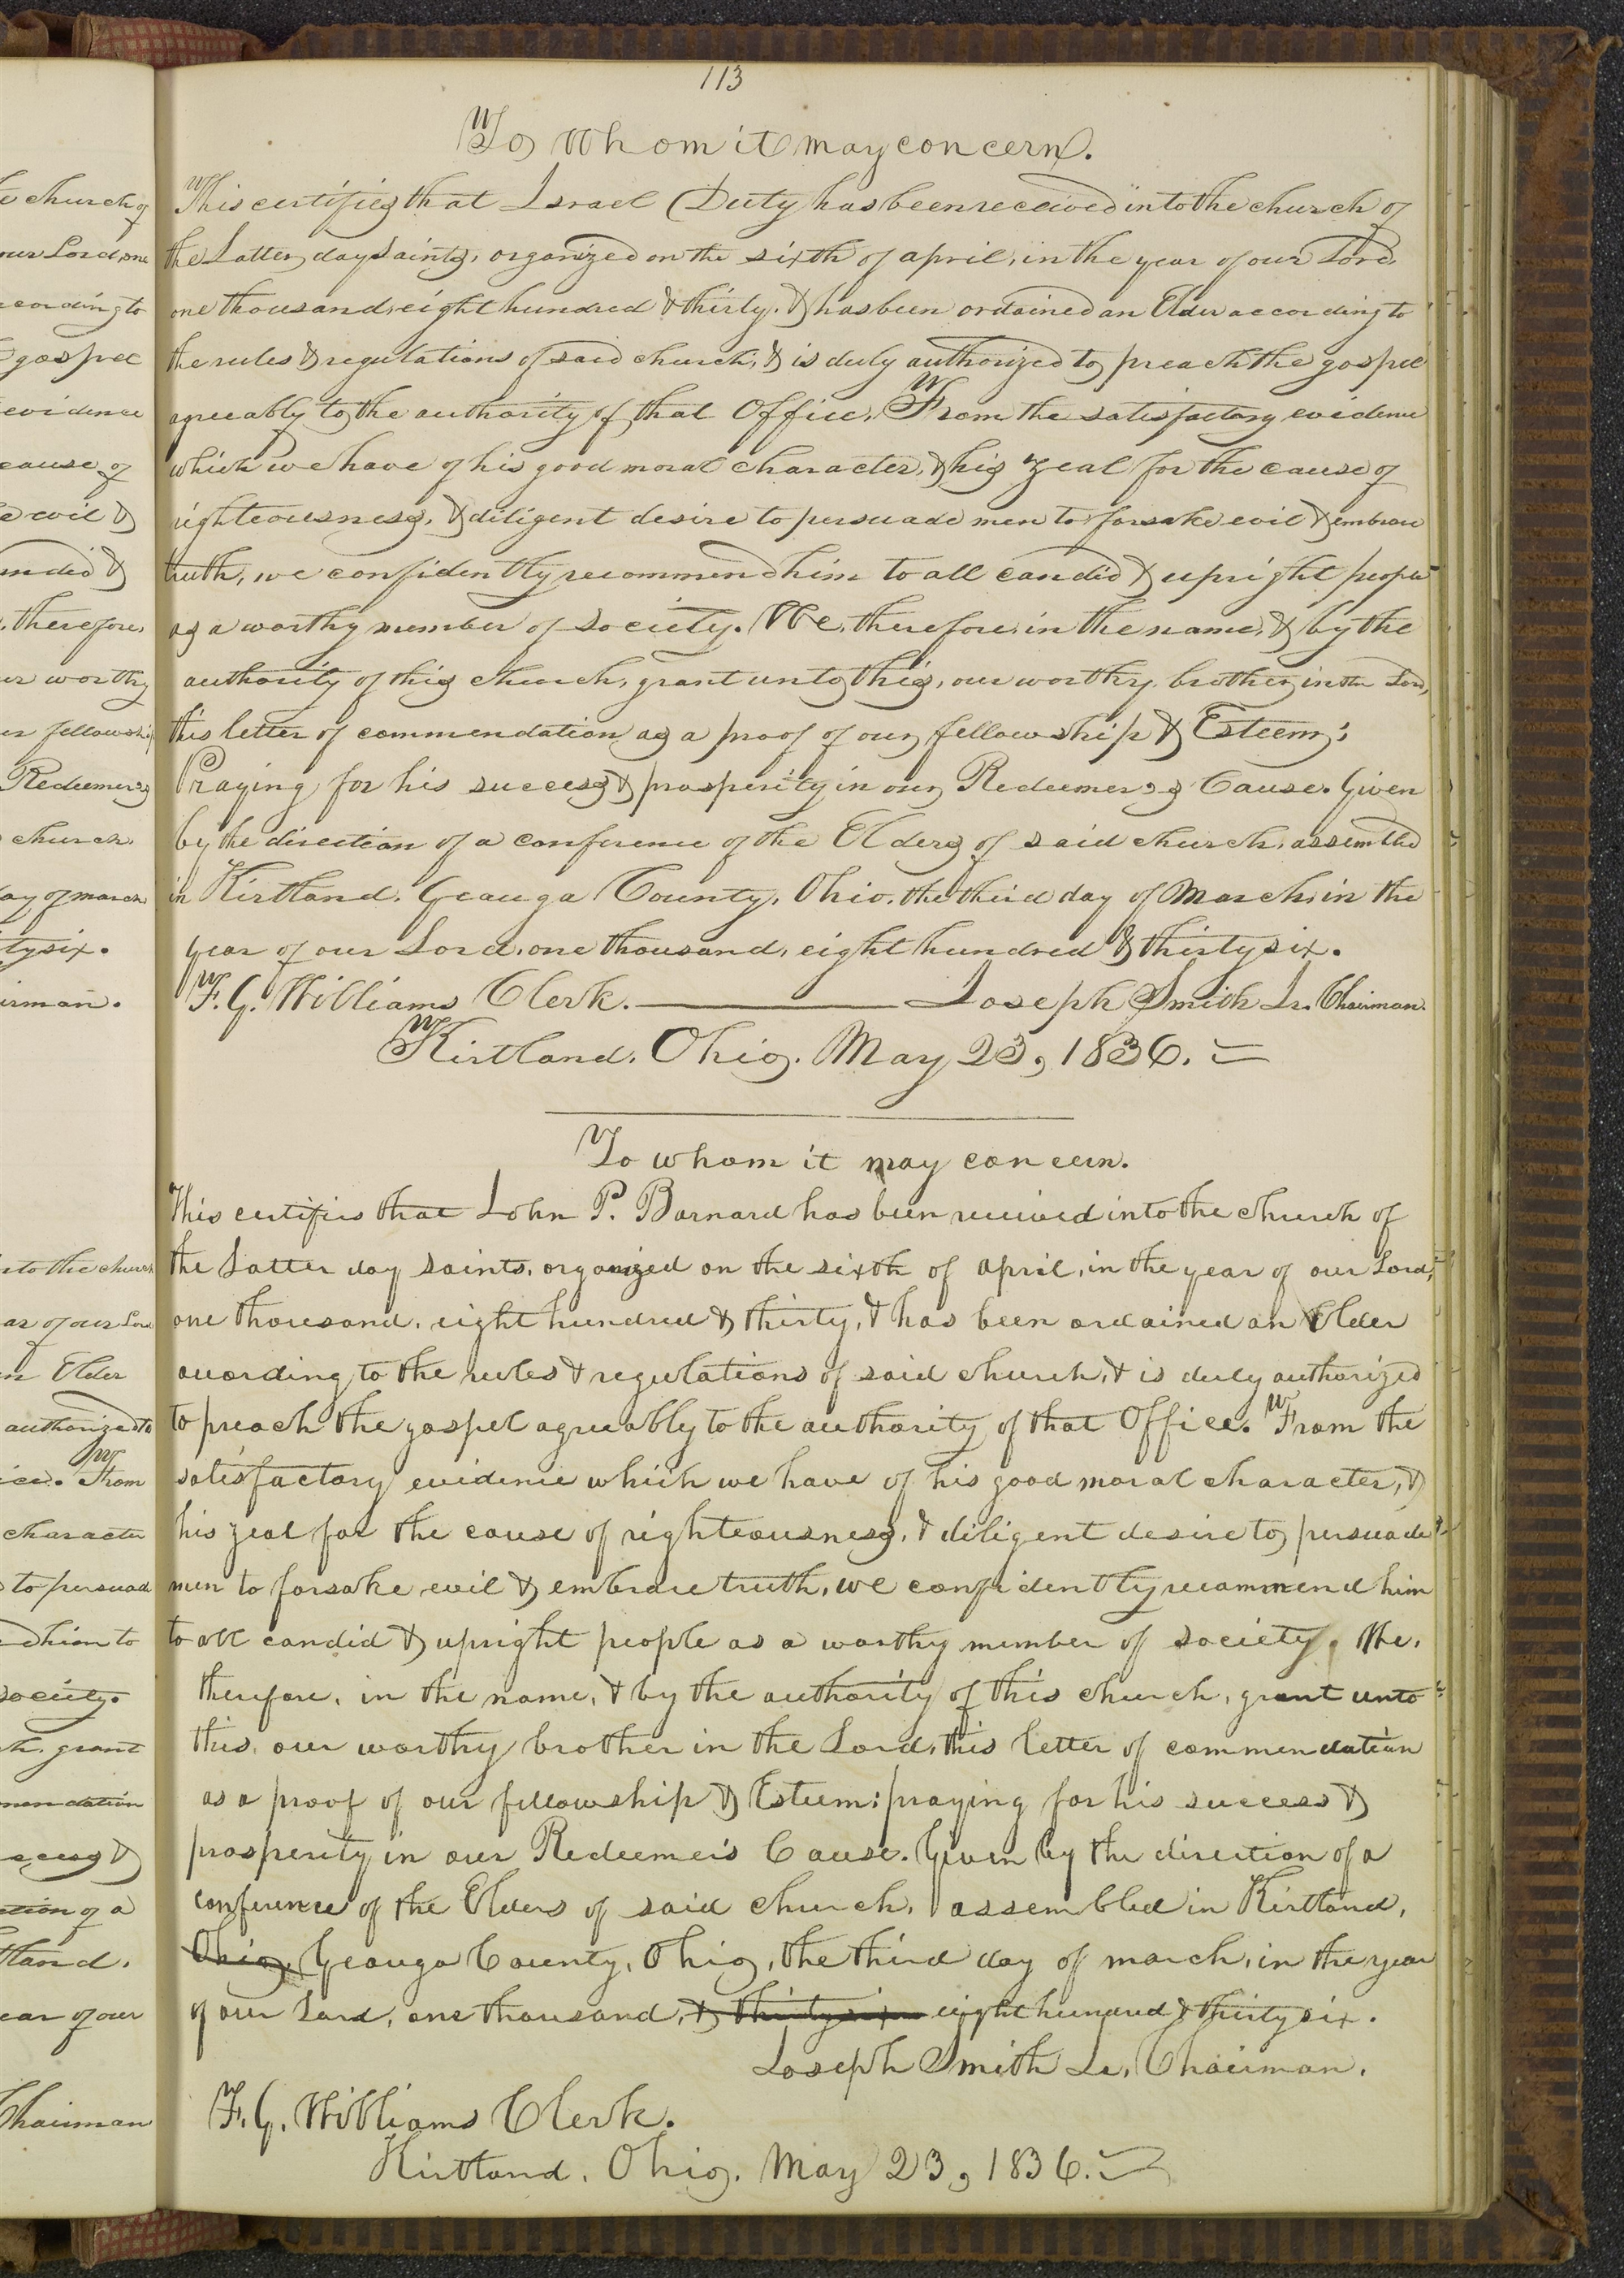 113
To Whom it may concern.
This certifies that Israel Duty has been received into the church of
the Latter day Saints, organized on the sixth of april, in the year of our Lord,
one thousand, eight hundred & thirty. & has been ordained an Elder according to
the rules & regulations of said church, & is duly authorized to preach the gospel
agreeably to the authority of that Office. From the satisfactory evidence
which we have of his good moral character, & his zeal for the cause of
righteousness, & diligent desire to persuade men to forsake evil & embrace
truth, we confidently recommend him to all candid & upright people
as a worthy member of society. We, therefore, in the name, & by the
authority of this church, grant unto this, our worthy brother in the Lord,
this letter of commendation as a proof of our fellowship & Esteem:
Praying for his success & prosperity in our Redeemer's Cause. Given
by the direction of a conference of the Elders of said church, assembled
in Kirtland, Geauga County, Ohio, the third day of March, in the
year of our Lord, one thousand, eight hundred & thirty six.
F. G. Williams Clerk. Joseph Smith Jr. Chairman.
Kirtland, Ohio. May 23, 1836.
To whom it may concern.
This certifies that John P. Barnard has been received into the church of
the Latter day saints, organized on the sixth of april, in the year of our Lord,
one thousand, eight hundred & thirty, & has been ordained an Elder
according to the rules & regulations of said church, & is duly authorized
to preach the gospel agreeably to the authority of that Office. From the
satisfactory evidence which we have of his good moral character, &
his zeal for the cause of righteousness, & diligent desire to persuade
men to forsake evil & embrace truth, we confidently recommend him
to all candid & upright people as a worthy member of society. We,
therefore, in the name, & by the authority of this church, grant unto
this, our worthy brother in the Lord, this letter of commendation
as a proof of our fellowship & Esteem: praying for his success &
prosperity in our Redeemer's Cause. Given by the direction of a
conference of the Elders of said church, assembled in Kirtland,
Ohio, Geauga County, Ohio, the third day of march, in the year
of our Lord, one thousand, & thirty six eight hundred & thirty six.
Joseph Smith Jr. Chairman.
F. G. Williams Clerk.
Kirtland, Ohio. May 23, 1836.